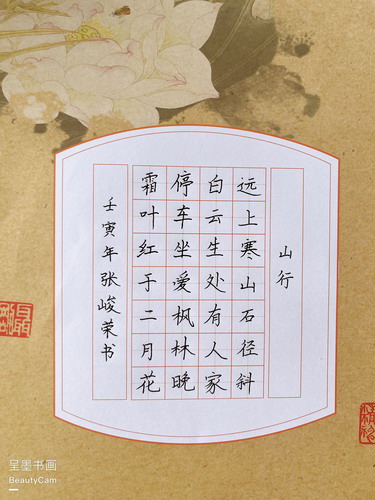 山行
远上寒山石径斜
白云生处有人家
停车坐爱枫林晚
霜叶红于二月花
壬寅年张峻荣书
呈墨书画
BeautyCam